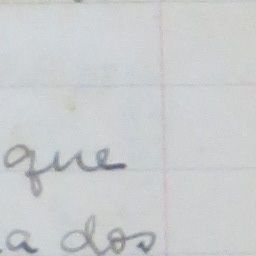 que
a dos